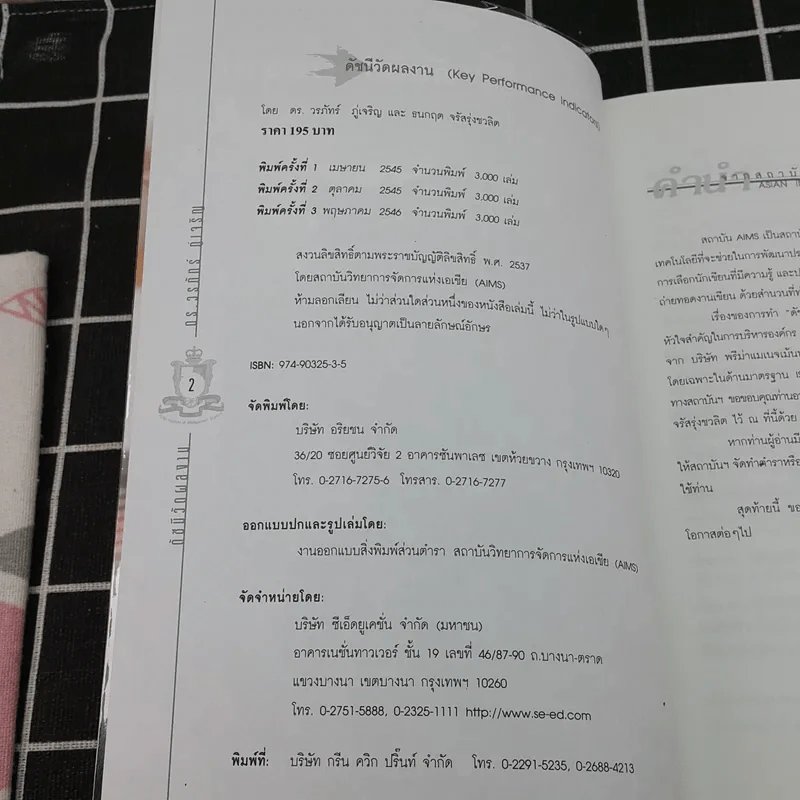 ดัชนีวัดผลงาน (Key Performance Indicators)
โดย ดร. วรภัทร์ ภู่เจริญ และ ธนกฤต จรัสรุ่งชวลิต
ราคา 195 บาท
พิมพ์ครั้งที่ 1 เมษายน 2545 จำนวนพิมพ์ 3,000 เล่ม
พิมพ์ครั้งที่ 2 ตุลาคม 2545 จำนวนพิมพ์ 3,000 เล่ม
พิมพ์ครั้งที่ 3 พฤษภาคม 2546 จำนวนพิมพ์ 3,000 เล่ม
สงวนลิขสิทธิ์ตามพระราชบัญญัติลิขสิทธิ์ พ.ศ. 2537
โดยสถาบันวิทยาการจัดการแห่งเอเชีย (AIMS)
ห้ามลอกเลียน ไม่ว่าส่วนใดส่วนหนึ่งของหนังสือเล่มนี้ ไม่ว่าในรูปแบบใดๆ
นอกจากได้รับอนุญาตเป็นลายลักษณ์อักษร
ISBN: 974-90325-3-5
จัดพิมพ์โดย:
บริษัท อริยชน จำกัด
36/20 ซอยศูนย์วิจัย 2 อาคารซันพาเลซ เขตห้วยขวาง กรุงเทพฯ 10320
โทร. 0-2716-7275-6 โทรสาร. 0-2716-7277
ออกแบบปกและรูปเล่มโดย:
งานออกแบบสิ่งพิมพ์ส่วนตำรา สถาบันวิทยาการจัดการแห่งเอเชีย (AIMS)
จัดจำหน่ายโดย:
บริษัท ซีเอ็ดยูเคชั่น จำกัด (มหาชน)
อาคารเนชั่นทาวเวอร์ ชั้น 19 เลขที่ 46/87-90 ถ.บางนา-ตราด
แขวงบางนา เขตบางนา กรุงเทพฯ 10260
โทร. 0-2751-5888, 0-2325-1111 http://www.se-ed.com
พิมพ์ที่: บริษัท กรีน ควิก ปริ๊นท์ จำกัด โทร. 0-2291-5235, 0-2688-4213
ดร.วรภัทร์ ภู่เจริญ
2
ดัชนีวัดผลงาน
คำนำ
จากสถาบั
ASIAN I
สถาบัน AIMS เป็นสถาบั
เทคโนโลยีที่จะช่วยในการพัฒนาประ
การเลือกนักเขียนที่มีความรู้ และป
ถ่ายทอดงานเขียน ด้วยสำนวนที่ท
เรื่องของการทำ "ดัช
หัวใจสำคัญในการบริหารองค์กร
จาก บริษัท พรีม่าแมเนจเม้นท
โดยเฉพาะในด้านมาตรฐาน IS
ทางสถาบันฯ ขอขอบคุณท่านอา
จรัสรุ่งชวลิต ไว้ ณ ที่นี้ด้วย
หากท่านผู้อ่านมี
ให้สถาบันฯ จัดทำตำราหรือ
ใช้ท่าน
สุดท้ายนี้ ขอ
โอกาสต่อๆไป